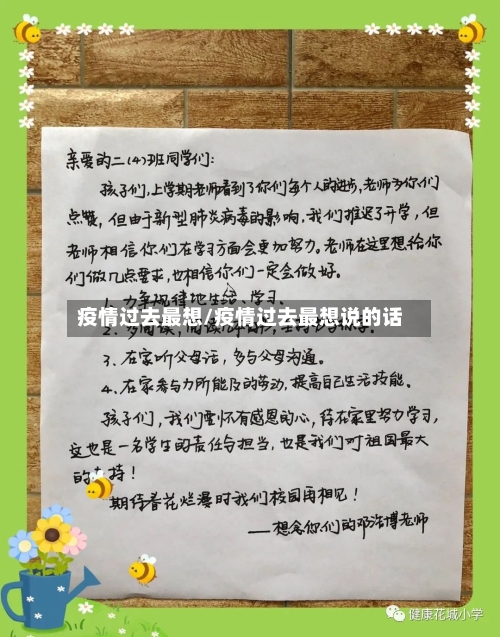 亲爱的二(4)班同学们:
孩子们,上学期老师看到了你们每个人的进步,老师为你们
点赞,但由于新型肺炎病毒的影响,我们推迟了开学,但
老师相信你们在学习方面会更加努力。老师在这里想给你
们做几点要求,也相信你们一定会做好。
1.力争规律地生活、学习。
疫情过去最想/疫情过去最想说的话
2.
3、在家听父母话,多与父母沟通。
4、在家参与力所能及的劳动,提高自己生活技能。
孩子们,我们要怀有感恩的心,待在家里努力学习,
这也是一名学生的责任与担当,也是我们对祖国最大
的支持!
期待春花烂漫时我们校园再相见!
——想念你们的邓浩博老师
健康花城小学